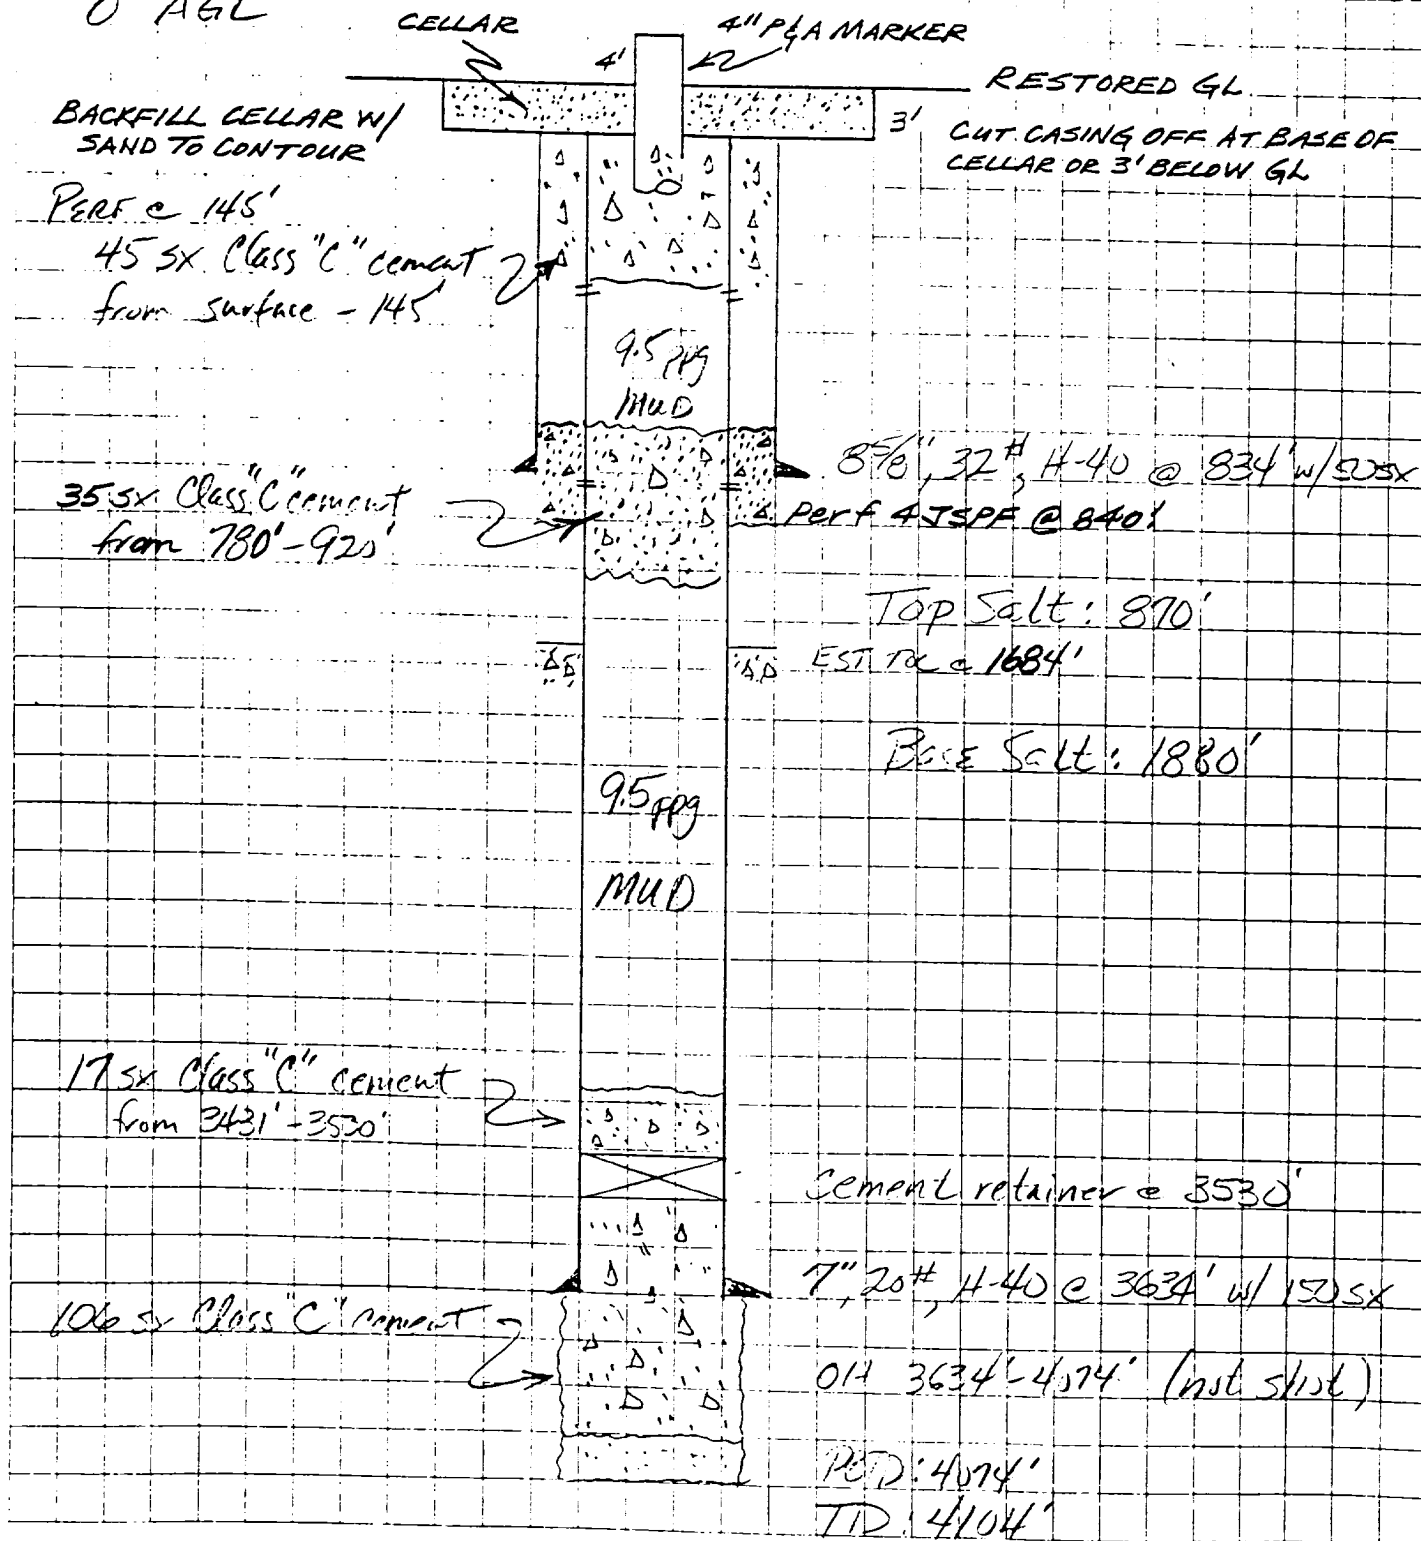 0' AGL
CELLAR
4" P&A MARKER
4'
RESTORED GL
BACKFILL CELLAR W/
SAND TO CONTOUR
3'
CUT CASING OFF AT BASE OF
CELLAR OR 3' BELOW GL
PERF @ 145'
45 sx Class "C" cement
from surface - 145'
9.5 ppg
MUD
8 5/8", 32#, H-40 @ 834' w/ 50sx
35 sx Class "C" cement
from 780' - 920'
Perf 4 JSPF @ 840'
Top Salt: 870'
EST TOC @ 1684'
Base Salt: 1880'
9.5 ppg
MUD
17 sx Class "C" cement
from 3431' - 3530'
Cement retainer @ 3530'
7", 20#, H-40 @ 3634' w/ 150 sx
106 sx Class "C" cement
OH 3634' - 4074' (not shot)
PBTD: 4074'
TD: 4104'